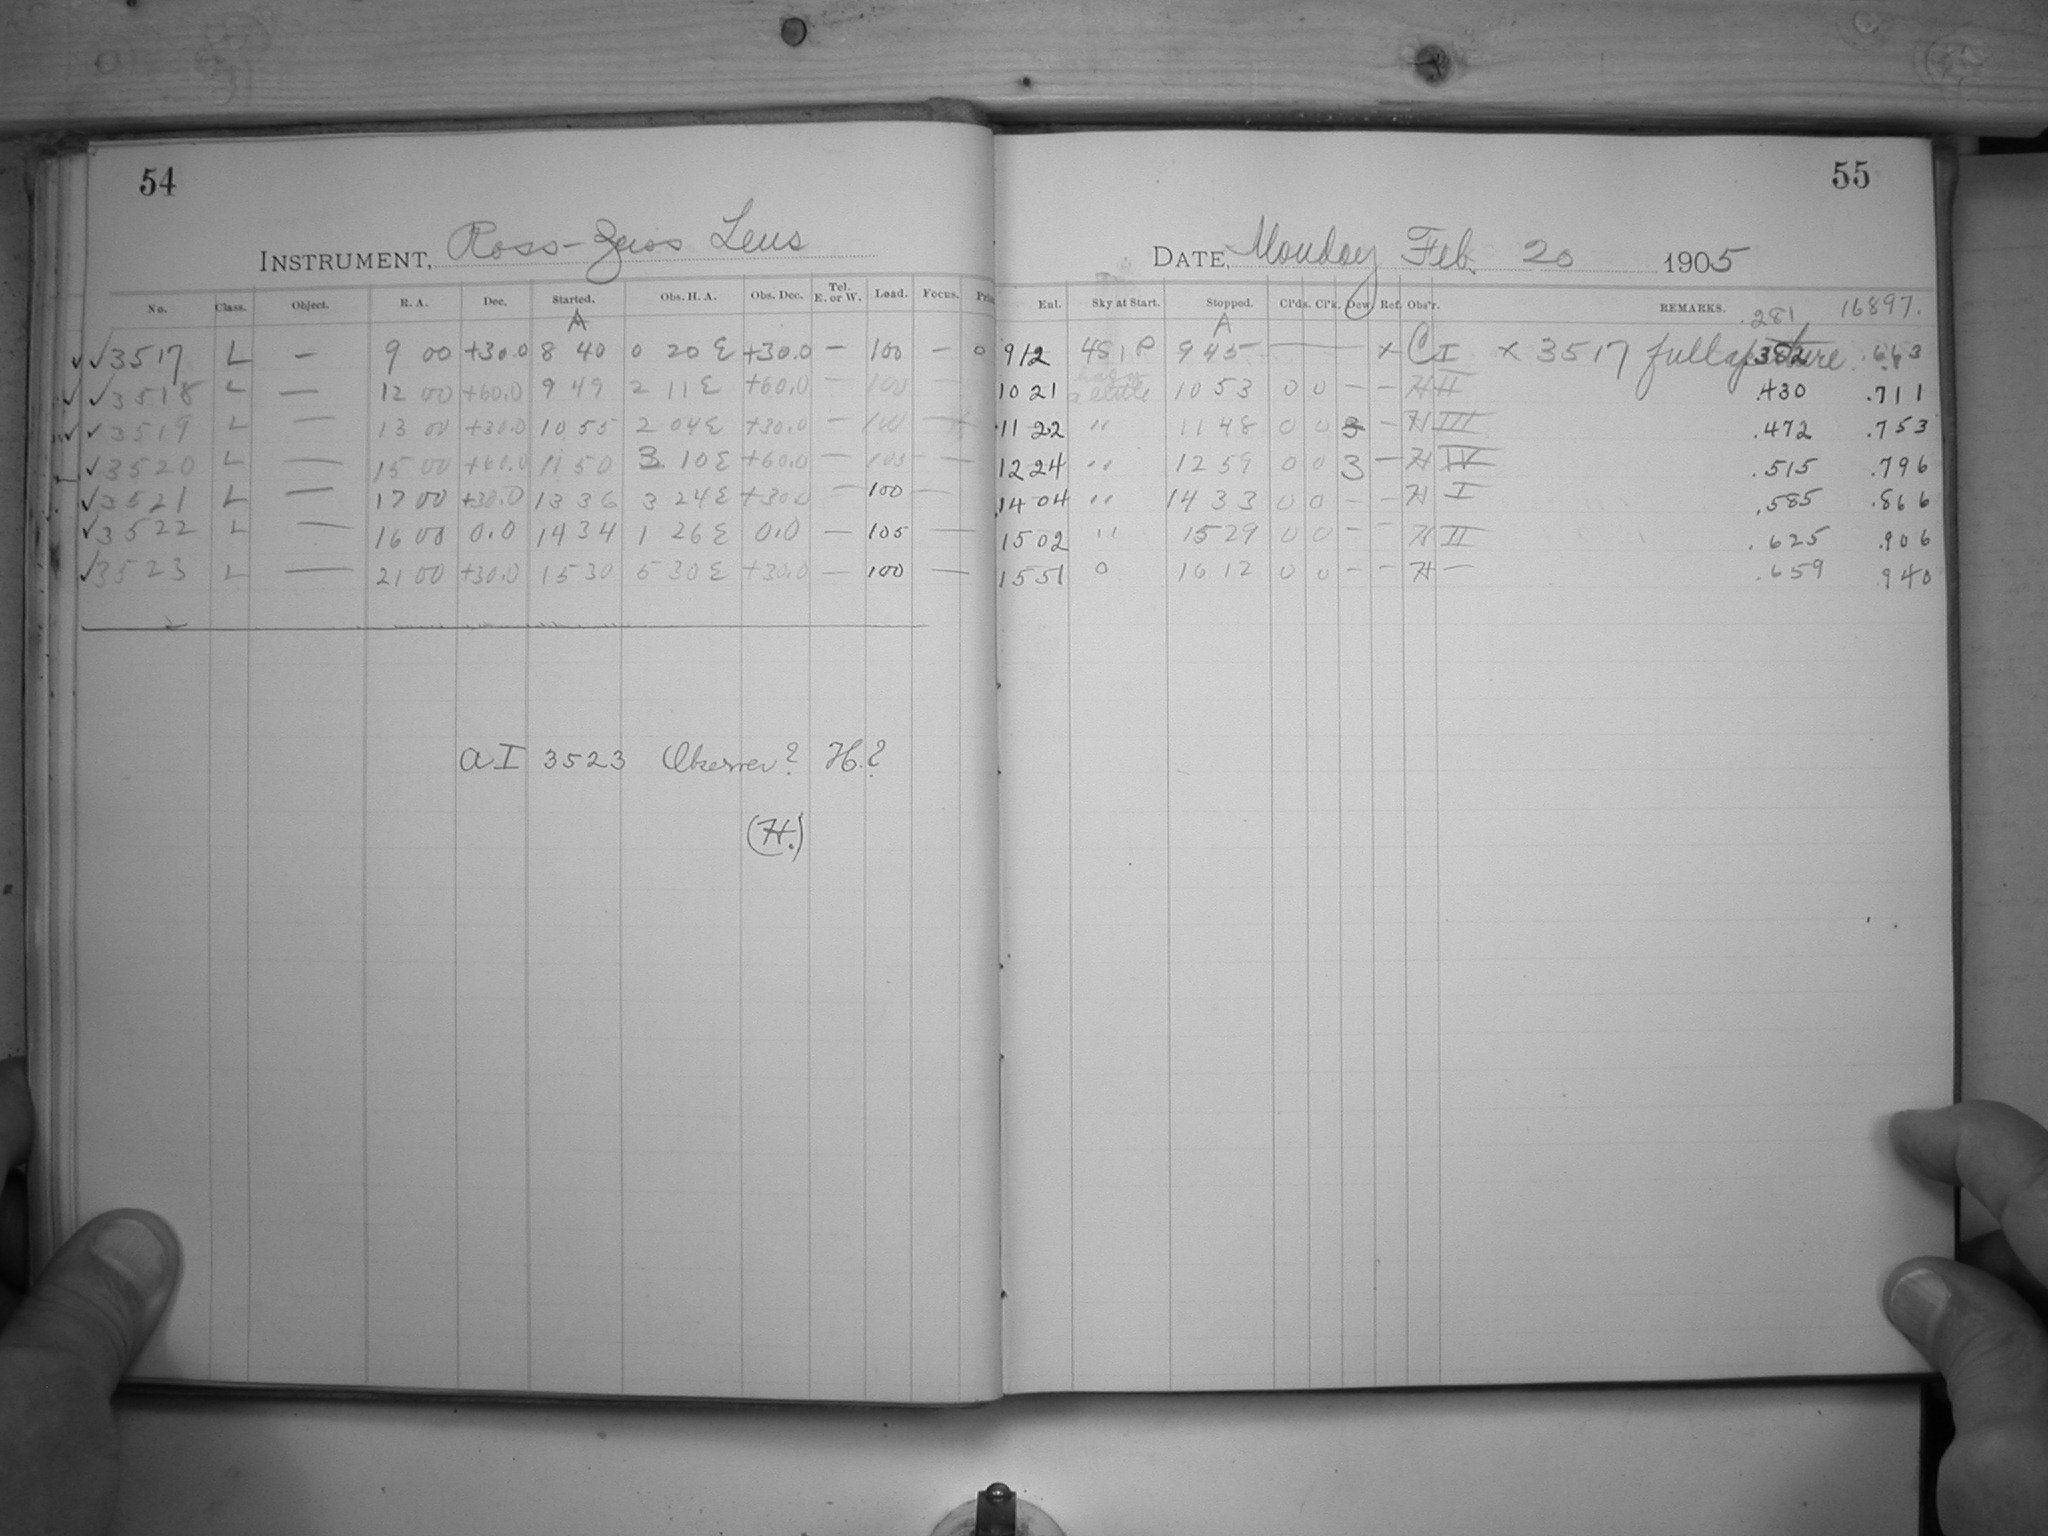 54
INSTRUMENT, Ross-Zeiss Lens
No. Class. Object. R. A. Dec. Started. Obs. H. A. Obs. Dec. Tel. E. or W. Load. Focus.
A
✓ ✓3517 L — 9 00 +30.0 8 40 0 20 E +30.0 — 100 — 0
✓ ✓3518 L — 12 00 +60.0 9 49 2 11 E +60.0 — 100 —
✓ ✓3519 L — 13 00 +30.0 10 55 2 04 E +30.0 — 100 —
✓3520 L — 15 00 +60.0 11 50 3 10 E +60.0 — 105 —
✓3521 L — 17 00 +30.0 13 36 3 24 E +30.0 — 100 —
✓3522 L — 16 00 0.0 14 34 1 26 E 0.0 — 105 —
✓3523 L — 21 00 +30.0 15 30 5 30 E +30.0 — 100 —
a I 3523 Observer? H.?
(H.)
55
DATE, Monday Feb. 20 1905
Eul. Sky at Start. Stopped. Cl'ds. Cl'k. Dew Ref. Obs'r. REMARKS.
A .281 16897.
9 12 4S,P 9 45 — x C I x 3517 full aperture .382 .663
10 21 a little 10 53 0 0 — — H II .430 .711
11 22 " 11 48 0 0 3 — H III .472 .753
12 24 " 12 59 0 0 3 — H IV .515 .796
14 04 " 14 33 0 0 — — H I .585 .866
15 02 " 15 29 0 0 — — H II .625 .906
15 51 0 16 12 0 0 — — H — .659 .940